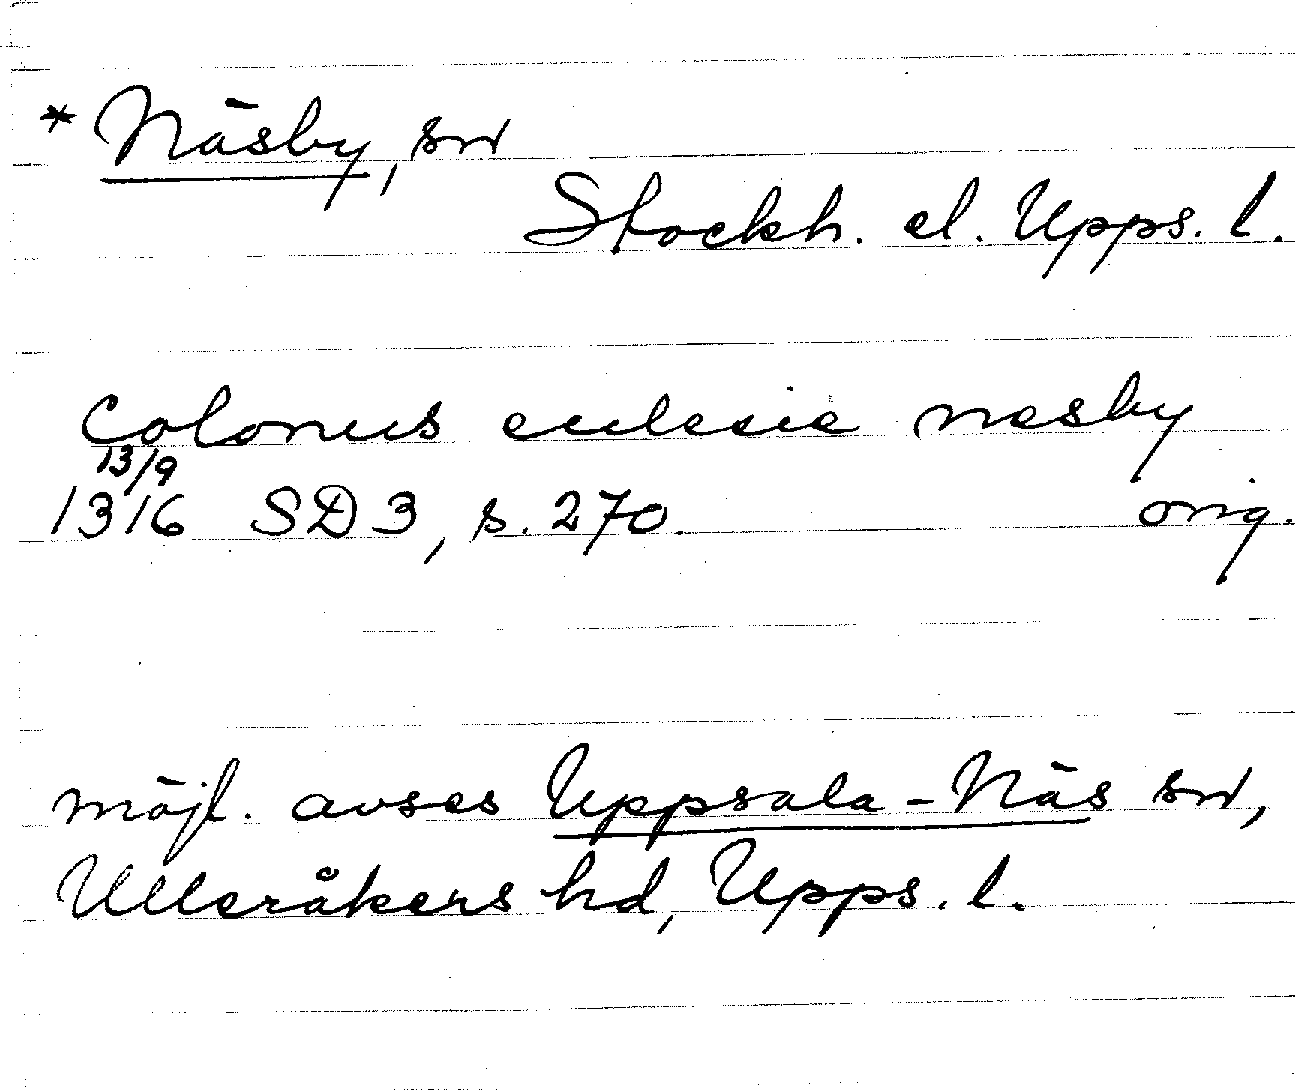 * Näsby, sn
Stockh. el. Upps. l.
Colonus eclesie nesby
13/9
1316 SD 3, s. 270. orig.
möjl. avses Uppsala-Näs sn,
Ulleråkers hd, Upps. l.